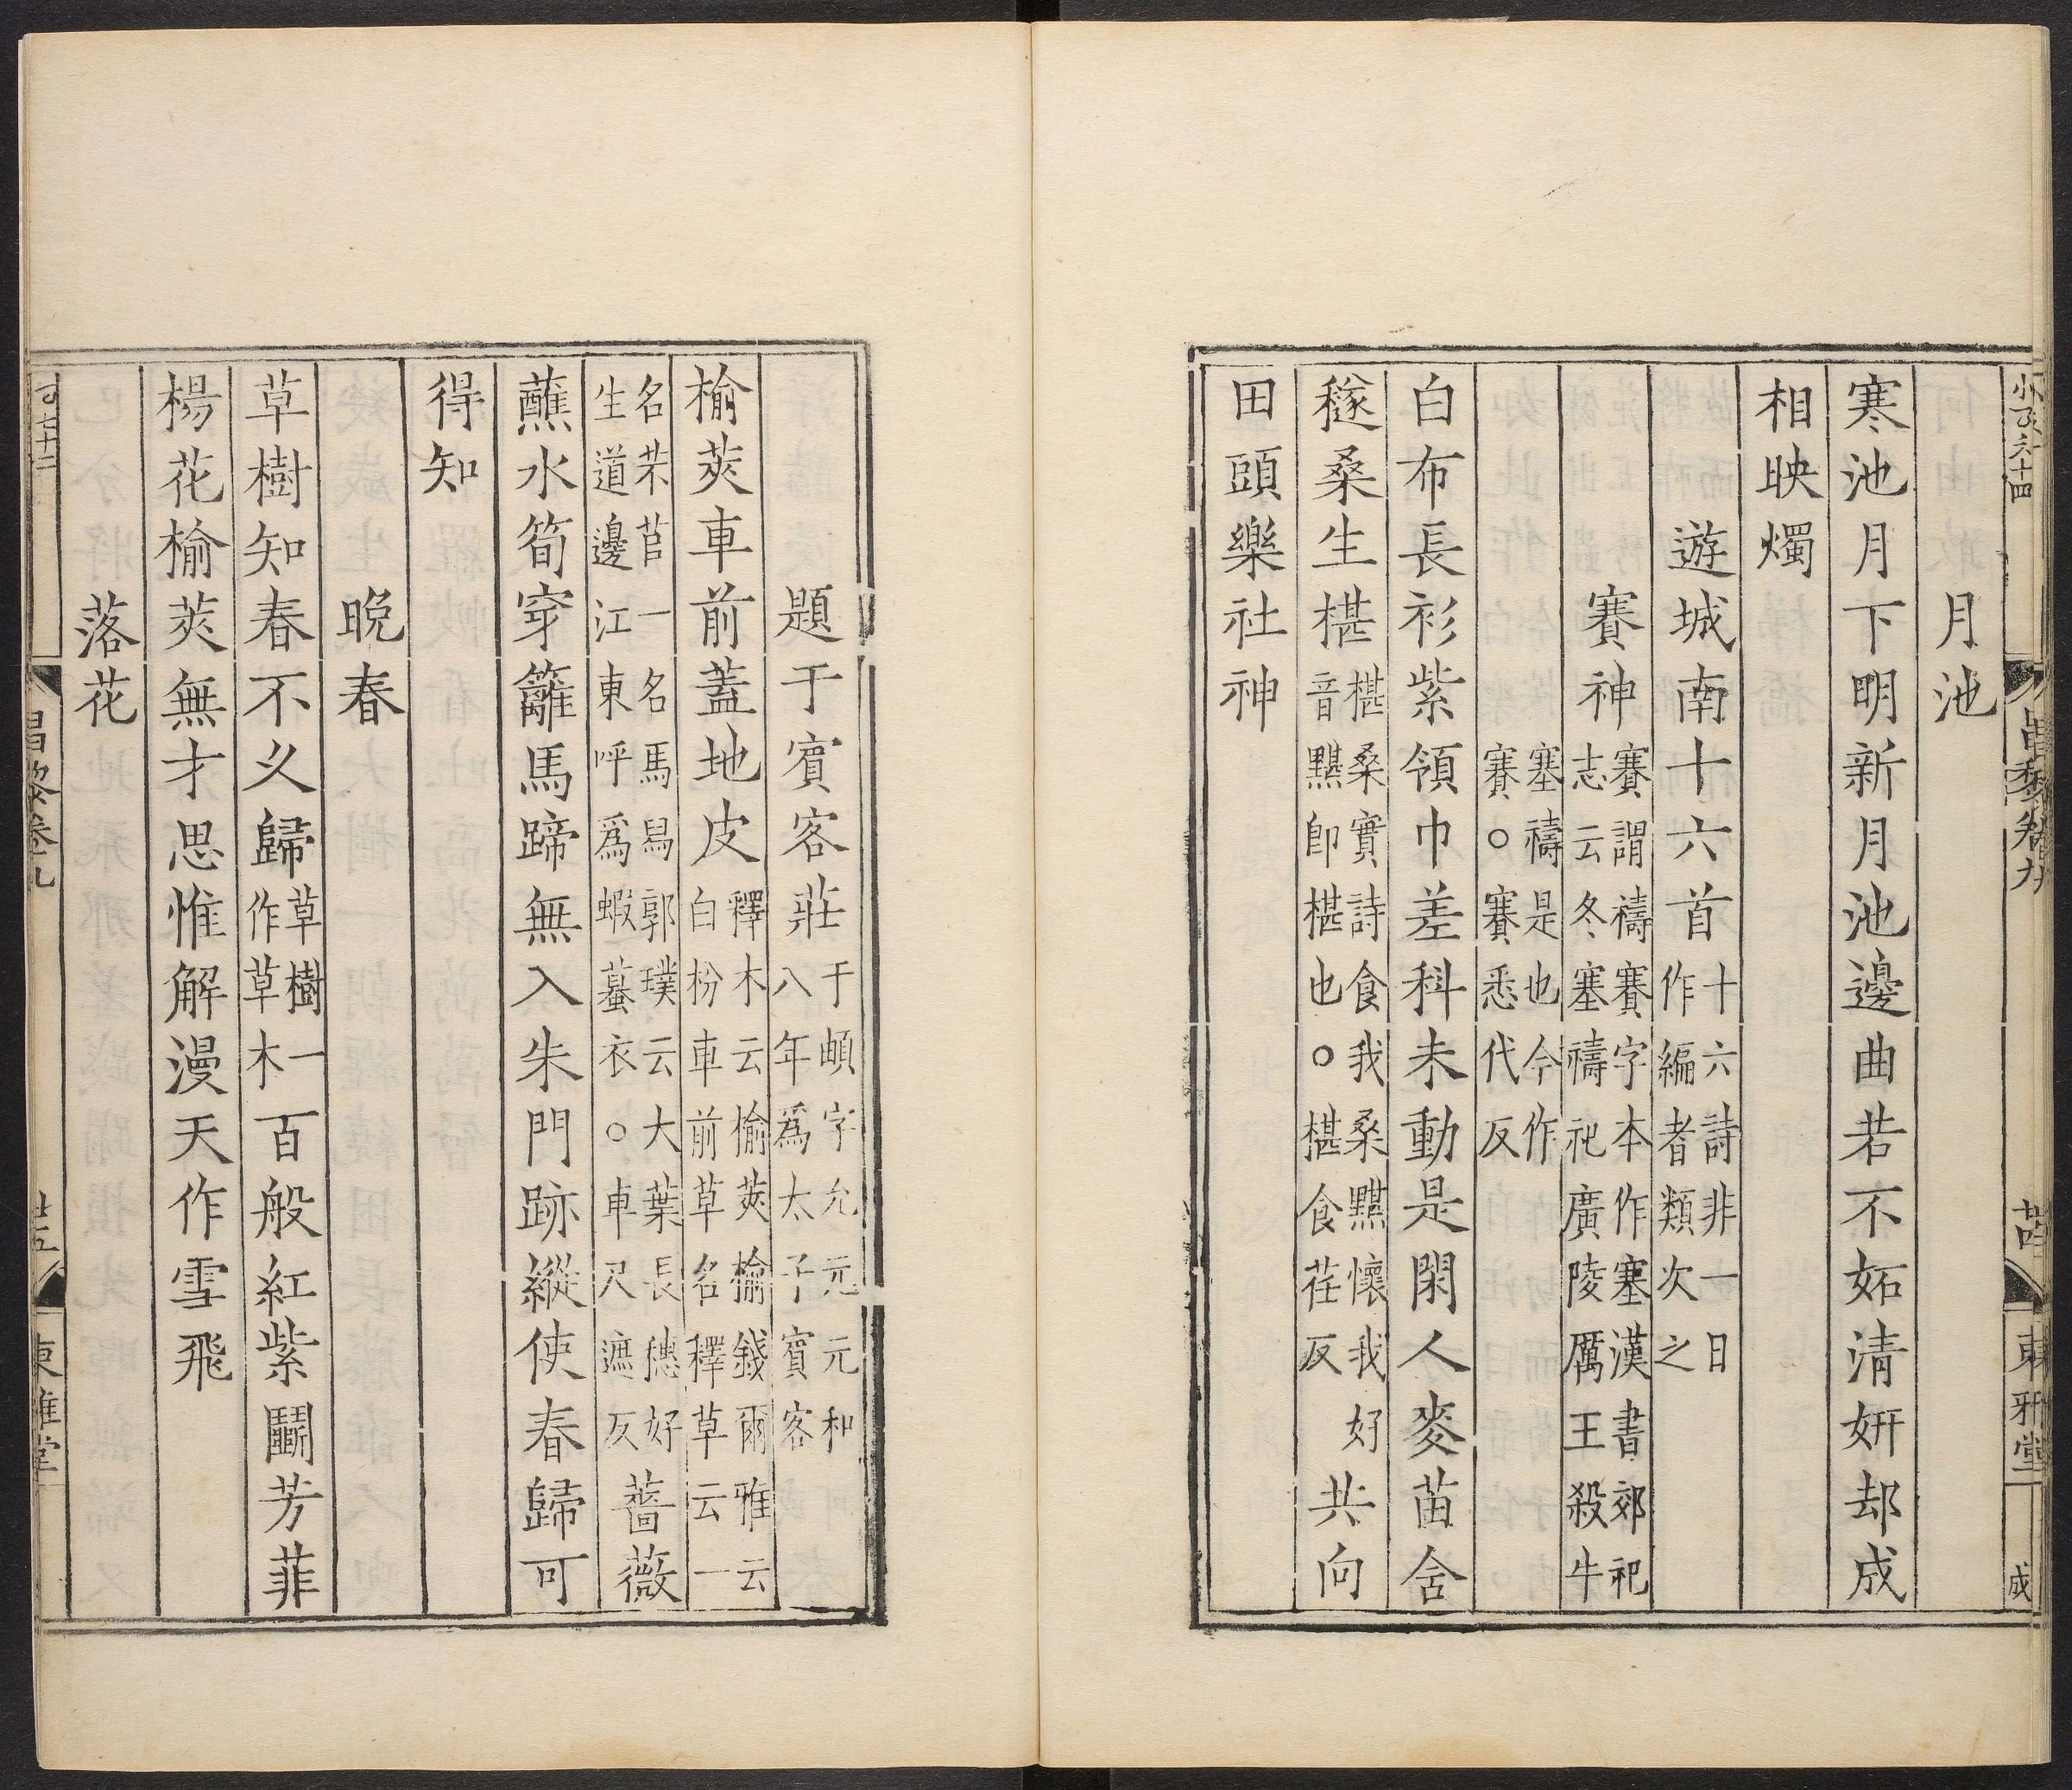 月池
寒池月下明新月池邊曲若不妬清妍却成
相映燭
遊城南十六首十六詩非一日作編者類次之
賽神賽謂禱賽字本作塞漢書郊祀志云冬塞禱祀廣陵厲王殺牛
塞禱是也今作賽○賽悉代反
白布長衫紫領巾差科未動是閑人麥苗含
穟桑生椹椹桑實詩食我桑黮懷我好音黮卽椹也○椹食荏反共向
田頭樂社神
題于賓客莊于頔字允元元和八年爲太子賓客
榆莢車前蓋地皮釋木云榆莢榆錢爾雅云白枌車前草名釋草云一
名芣苢一名馬舄郭璞云大葉長穗好生道邊江東呼爲蝦蟇衣○車尺遮反薔薇
蘸水筍穿籬馬蹄無入朱門跡縱使春歸可
得知
晚春
草樹知春不乆歸草樹一作草木百般紅紫鬭芳菲
楊花榆莢無才思惟解漫天作雪飛
落花
昌黎卷九
東雅堂
成
昌黎卷九
東雅堂